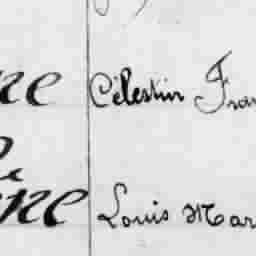 ne Célestin Fran
ine Louis Mar